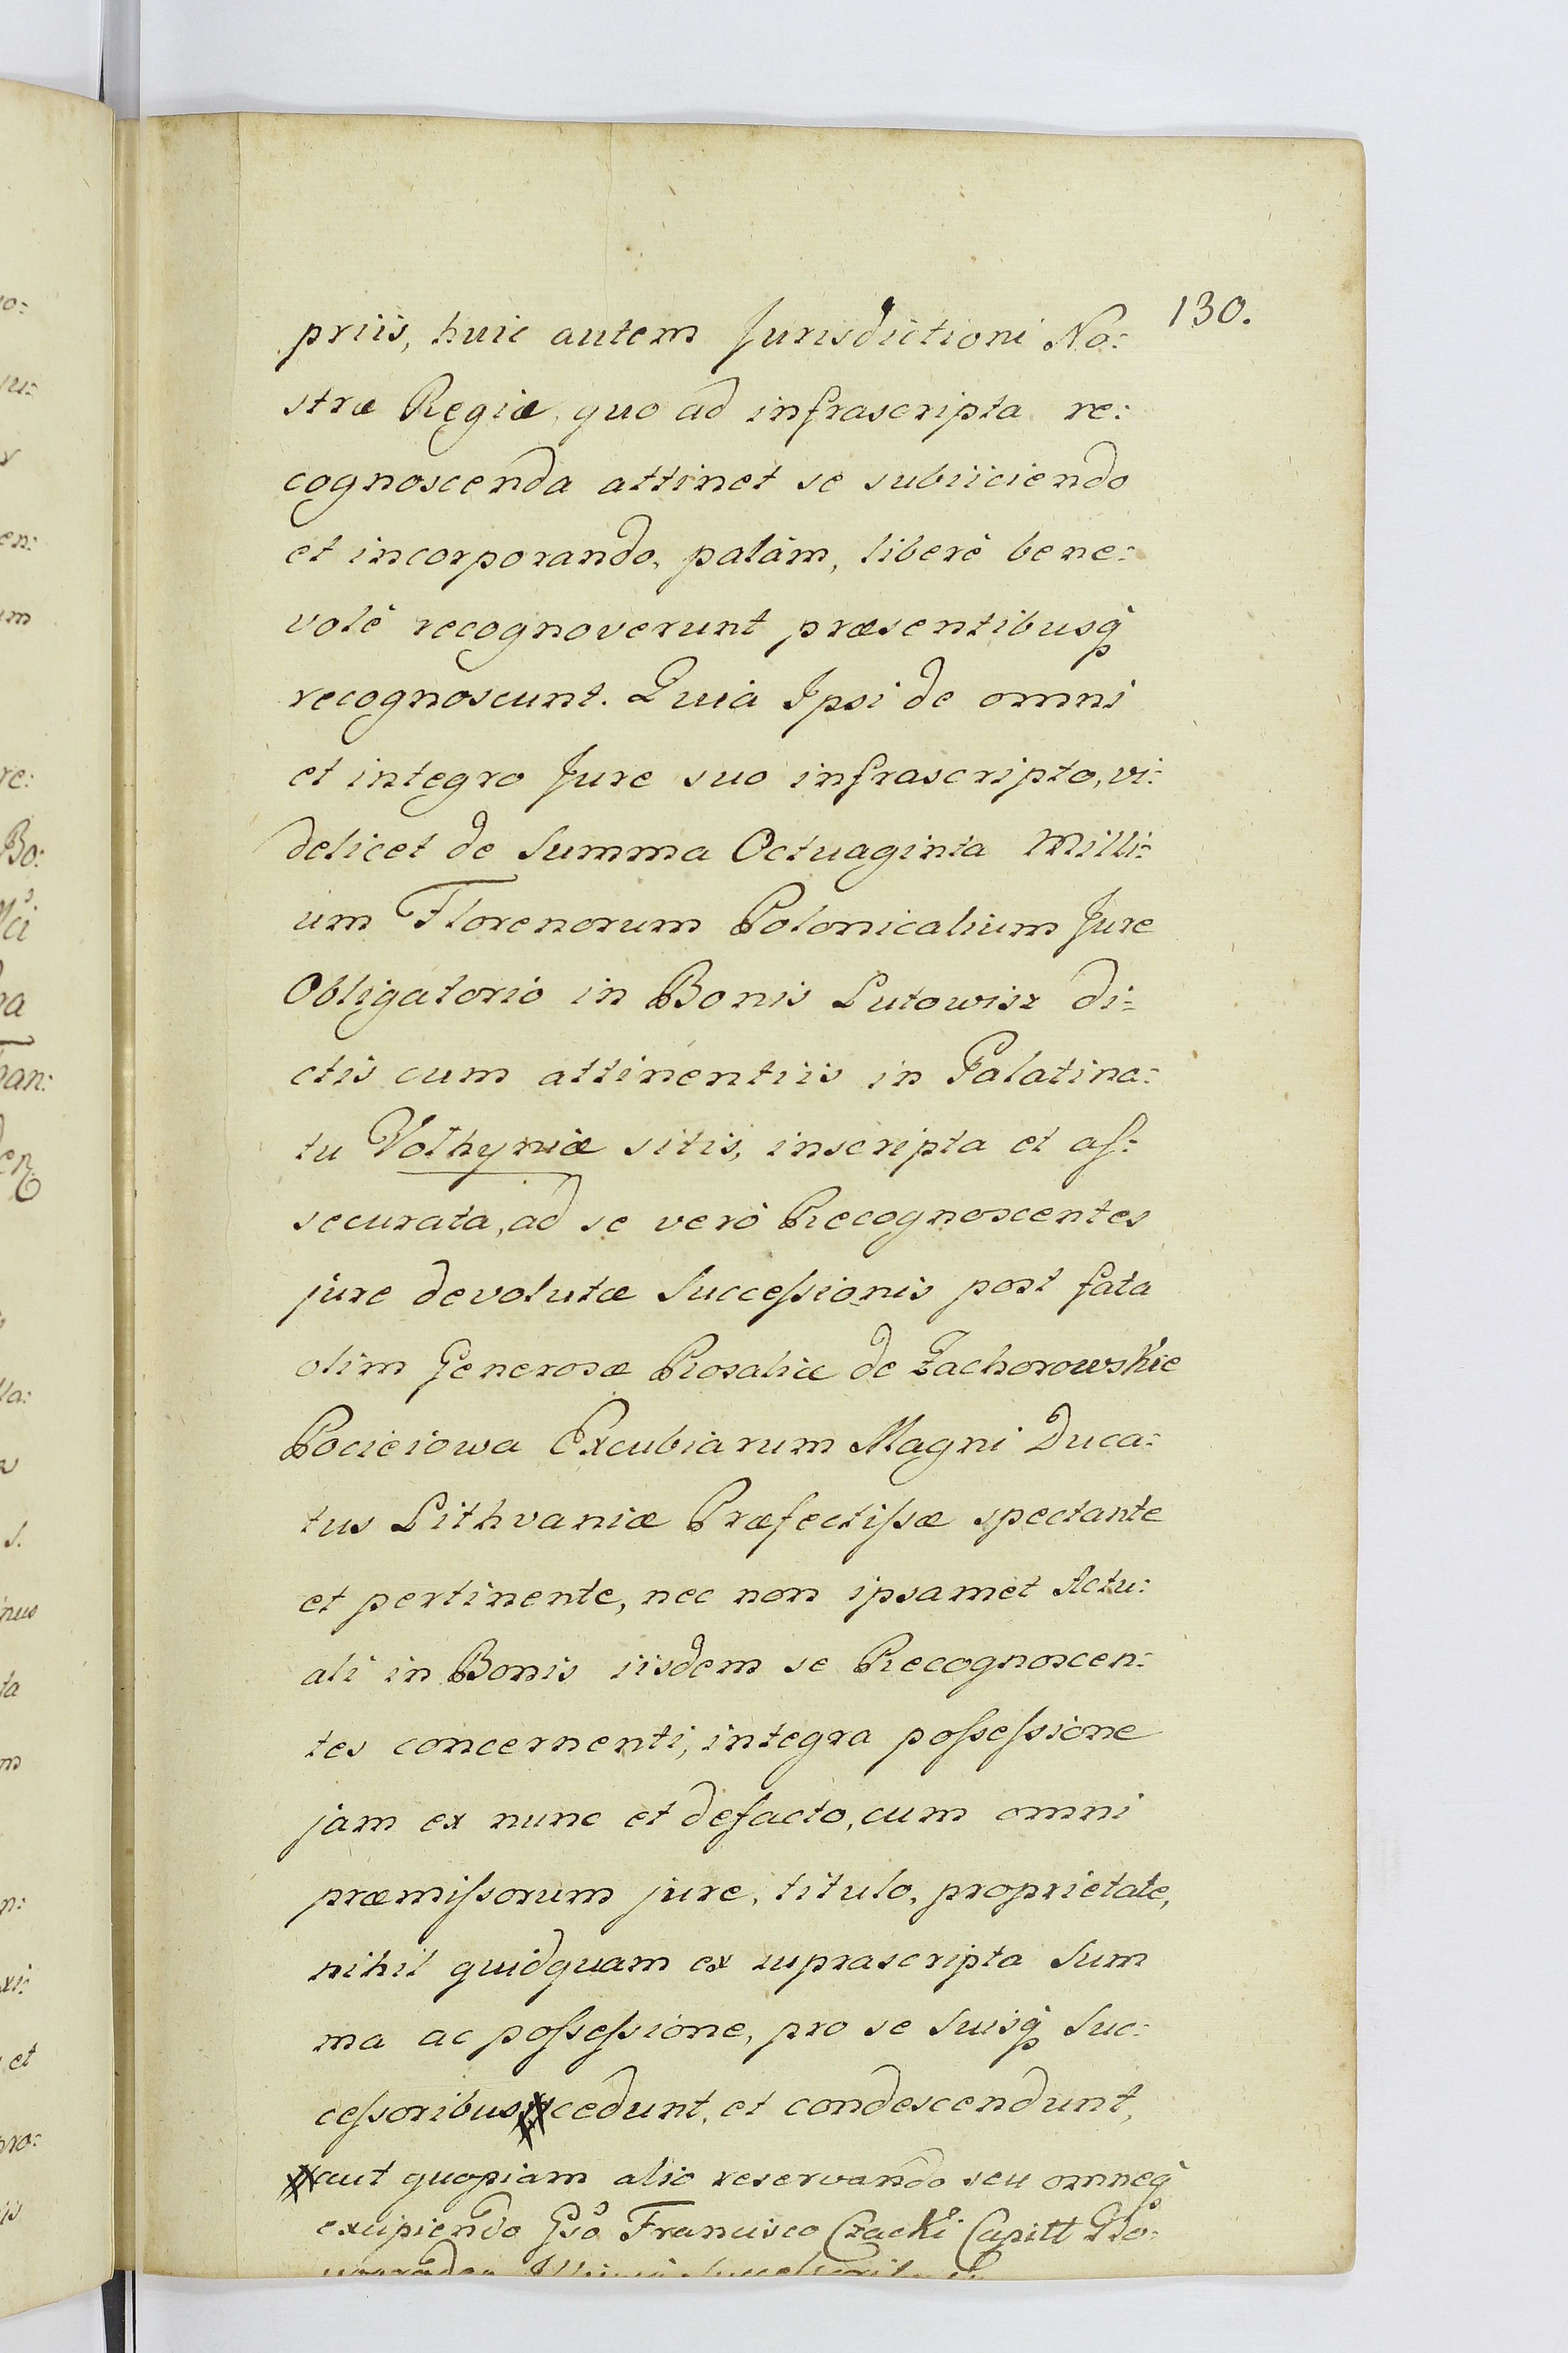 130.
priis, huic autem Jurisdictioni No:
stræ Regiæ quo ad infrascripta re:
cognoscenda attinet se subiiciendo
et incorporando, palàm, liberè bene:
volè recognoverunt præsentibusq̀
recognoscunt. Quia Ipsi de omni
et integro Jure suo infrascripto, vi:
delicet de Summa Octuaginta Milli:
um Florenorum Polonicalium Jure
Obligatorio in Bonis Lutowisz di:
ctis cum attinentiis in Palatina:
tu Volhyniæ sitis, inscripta et aſ:
securata, ad se verò Recognoscentes
jure devolutæ Succeſsionis post fata
olim Generosæ Rosaliæ de Zachorowskie
Pocieiowa Excubiarum Magni Duca:
tus Lithvaniæ Præfectiſsæ spectante
et pertinente, nec non ipsamet Actu:
ali in Bonis iisdem se Recognoscen:
tes concernenti, integra poſseſsione
jam ex nunc et defacto, cum omni
præmiſsorum jure, titulo, proprietate,
nihil quidquam ex suprascripta Sum
ma ac poſseſsione, pro se Suisq̀ Suc:
ceſsoribus cedunt, et condescendunt,
aut quopiam alio reservando seu omneq̀
excipiendo Gsō Francisco Czacki Capitt